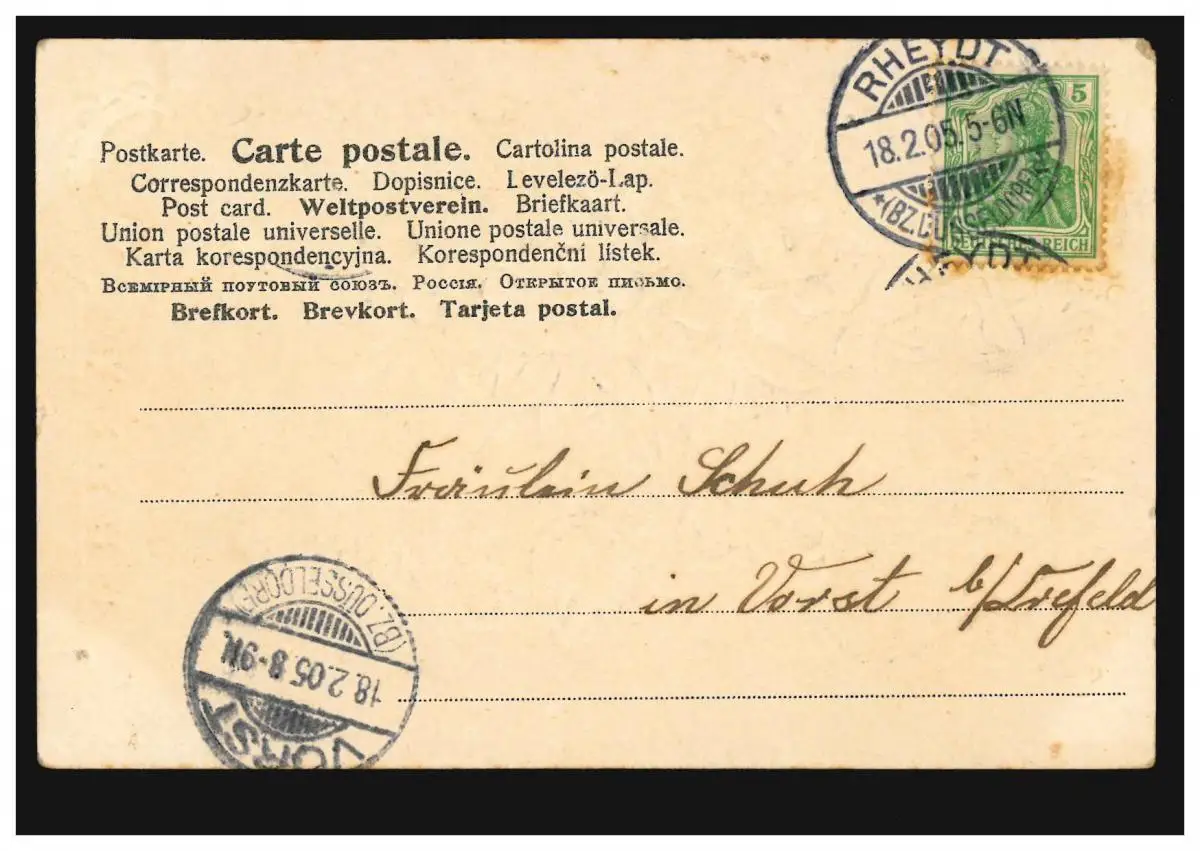 Postkarte. Carte postale. Cartolina postale.
Correspondenzkarte. Dopisnice. Levelező-Lap.
Post card. Weltpostverein. Briefkaart.
Union postale universelle. Unione postale universale.
Karta korespondencyjna. Korespondenční lístek.
Всемірный поутовый союзъ. Россія. Открытое письмо.
Brefkort. Brevkort. Tarjeta postal.
RHEYDT
18.2.05.5-6N
*(BZ.DÜSSELDORF)
5
DEUTSCHES REICH
RHEYDT
Fräulein Schuh
in Vorst b/Crefeld
VORST
18.2.05.8-9N.
(BZ.DÜSSELDORF)